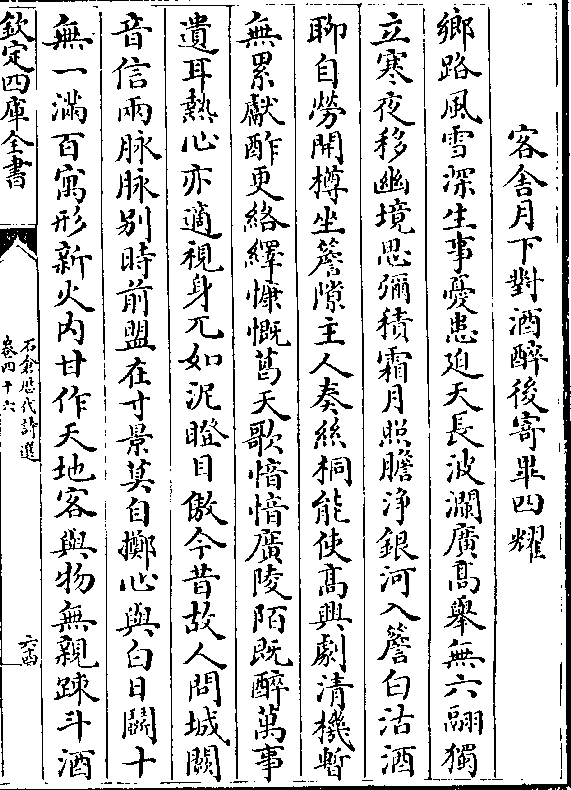 客舎月下對酒醉後寄畢四耀
鄉路風雪深生事憂患迫天長波瀾廣髙舉無六翮獨
立寒夜移幽境思彌積霜月照膽浄銀河入簷白沽酒
聊自勞開樽坐簷隙主人奏絲桐能使髙興劇清機暫
無累獻酢更絡繹慷慨葛天歌愔愔廣陵陌既醉萬事
遺耳熱心亦適視身兀如泥瞪目傲今昔故人問城闕
音信兩脉脉别時前盟在寸景莫自擲心與白日鬭十
無一滿百寓形新火内甘作天地客與物無親踈斗酒
欽定四庫全書
石倉歷代詩選
卷四十六